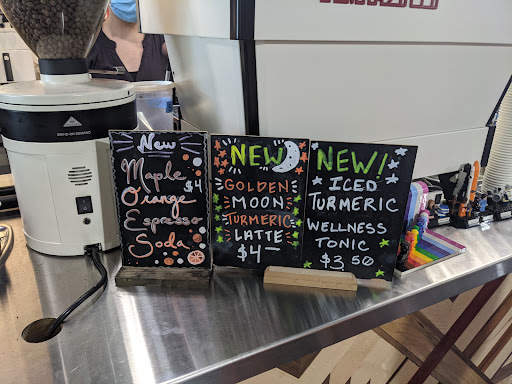 New
Maple
$4
Orange
Espresso
Soda
NEW
GOLDEN
MOON
TURMERIC
LATTE
$4-
NEW!
ICED
TURMERIC
WELLNESS
TONIC
$3.50